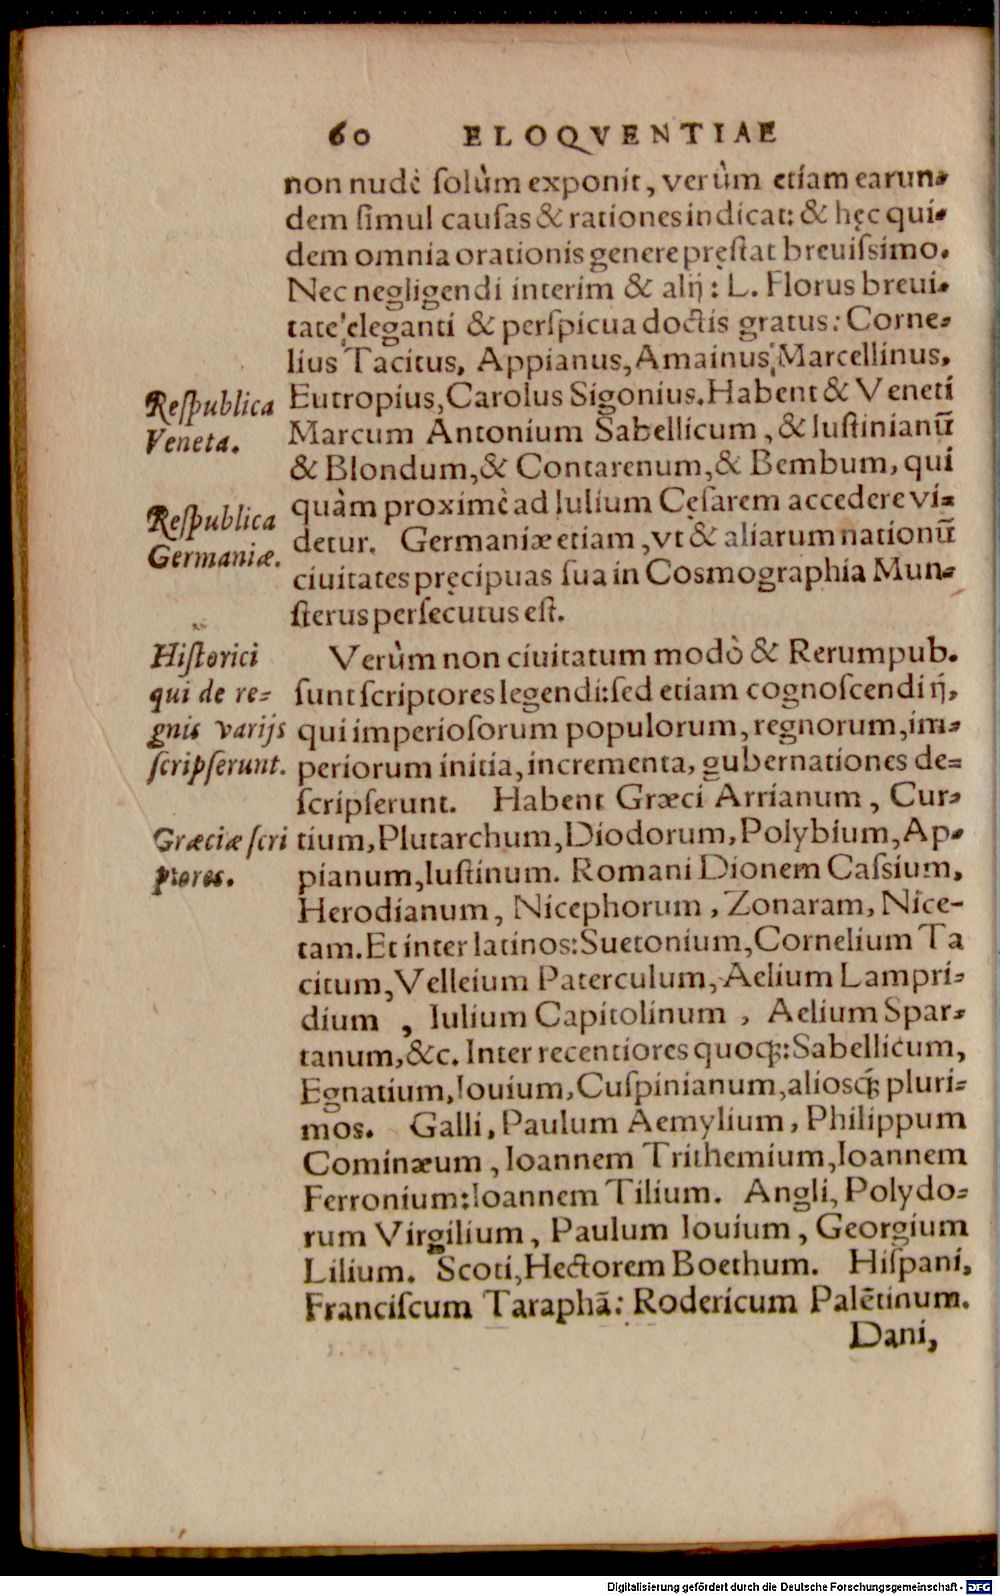 60 ELOQVENTIAE
non nudè ſolùm exponit, verùm etiam earun-
dem ſimul cauſas & rationes indicat: & hęc qui-
dem omnia orationis genere pręſtat breuiſsimo.
Nec negligendi interim & alij: L. Florus breui-
tate eleganti & perſpicua doctis gratus: Corne-
lius Tacitus, Appianus, Amainus Marcellinus,
Eutropius, Carolus Sigonius. Habent & Veneti
Marcum Antonium Sabellicum, & Iuſtinianū
& Blondum, & Contarenum, & Bembum, qui
quàm proximè ad Iulium Cęſarem accedere vi-
detur. Germaniæ etiam, vt & aliarum nationū
ciuitates pręcipuas ſua in Cosmographia Mun-
ſterus perſecutus eſt.
Verùm non ciuitatum modò & Rerumpub.
ſunt ſcriptores legendi: ſed etiam cognoſcendi ij,
qui imperioſorum populorum, regnorum, im-
periorum initia, incrementa, gubernationes de-
ſcripſerunt. Habent Græci Arrianum, Cur-
tium, Plutarchum, Diodorum, Polybium, Ap-
pianum, Iuſtinum. Romani Dionem Caſsium,
Herodianum, Nicephorum, Zonaram, Nice-
tam. Et inter latinos: Suetonium, Cornelium Ta
citum, Velleium Paterculum, Aelium Lampri-
dium, Iulium Capitolinum, Aelium Spar-
tanum, &c. Inter recentiores quoq;: Sabellicum,
Egnatium, Iouium, Cuſpinianum, aliosq; pluri-
mos. Galli, Paulum Aemylium, Philippum
Cominæum, Ioannem Trithemium, Ioannem
Ferronium: Ioannem Tilium. Angli, Polydo-
rum Virgilium, Paulum Iouium, Georgium
Lilium. Scoti, Hectorem Boethum. Hiſpani,
Franciſcum Taraphā: Rodericum Palētinum.
Dani,
Reſpublica
Veneta.
Reſpublica
Germaniæ.
Hiſtorici
qui de re-
gnis varijs
ſcripſerunt.
Græciæ ſcri
ptores.
Digitalisierung gefördert durch die Deutsche Forschungsgemeinschaft - DFG